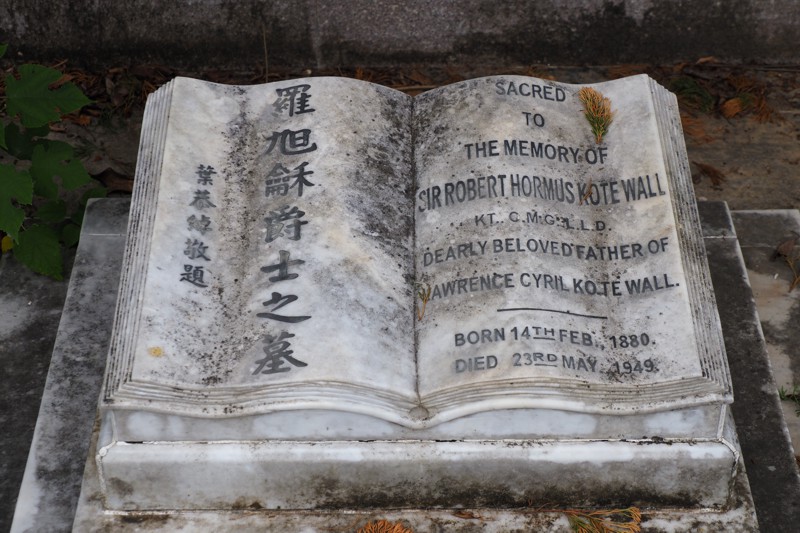 羅旭龢爵士之墓
葉恭綽敬題
SACRED
TO
THE MEMORY OF
SIR ROBERT HORMUS KOTEWALL
KT., C.M.G., L.L.D.
DEARLY BELOVED FATHER OF
LAWRENCE CYRIL KOTEWALL.
BORN 14TH FEB., 1880.
DIED 23RD MAY, 1949.